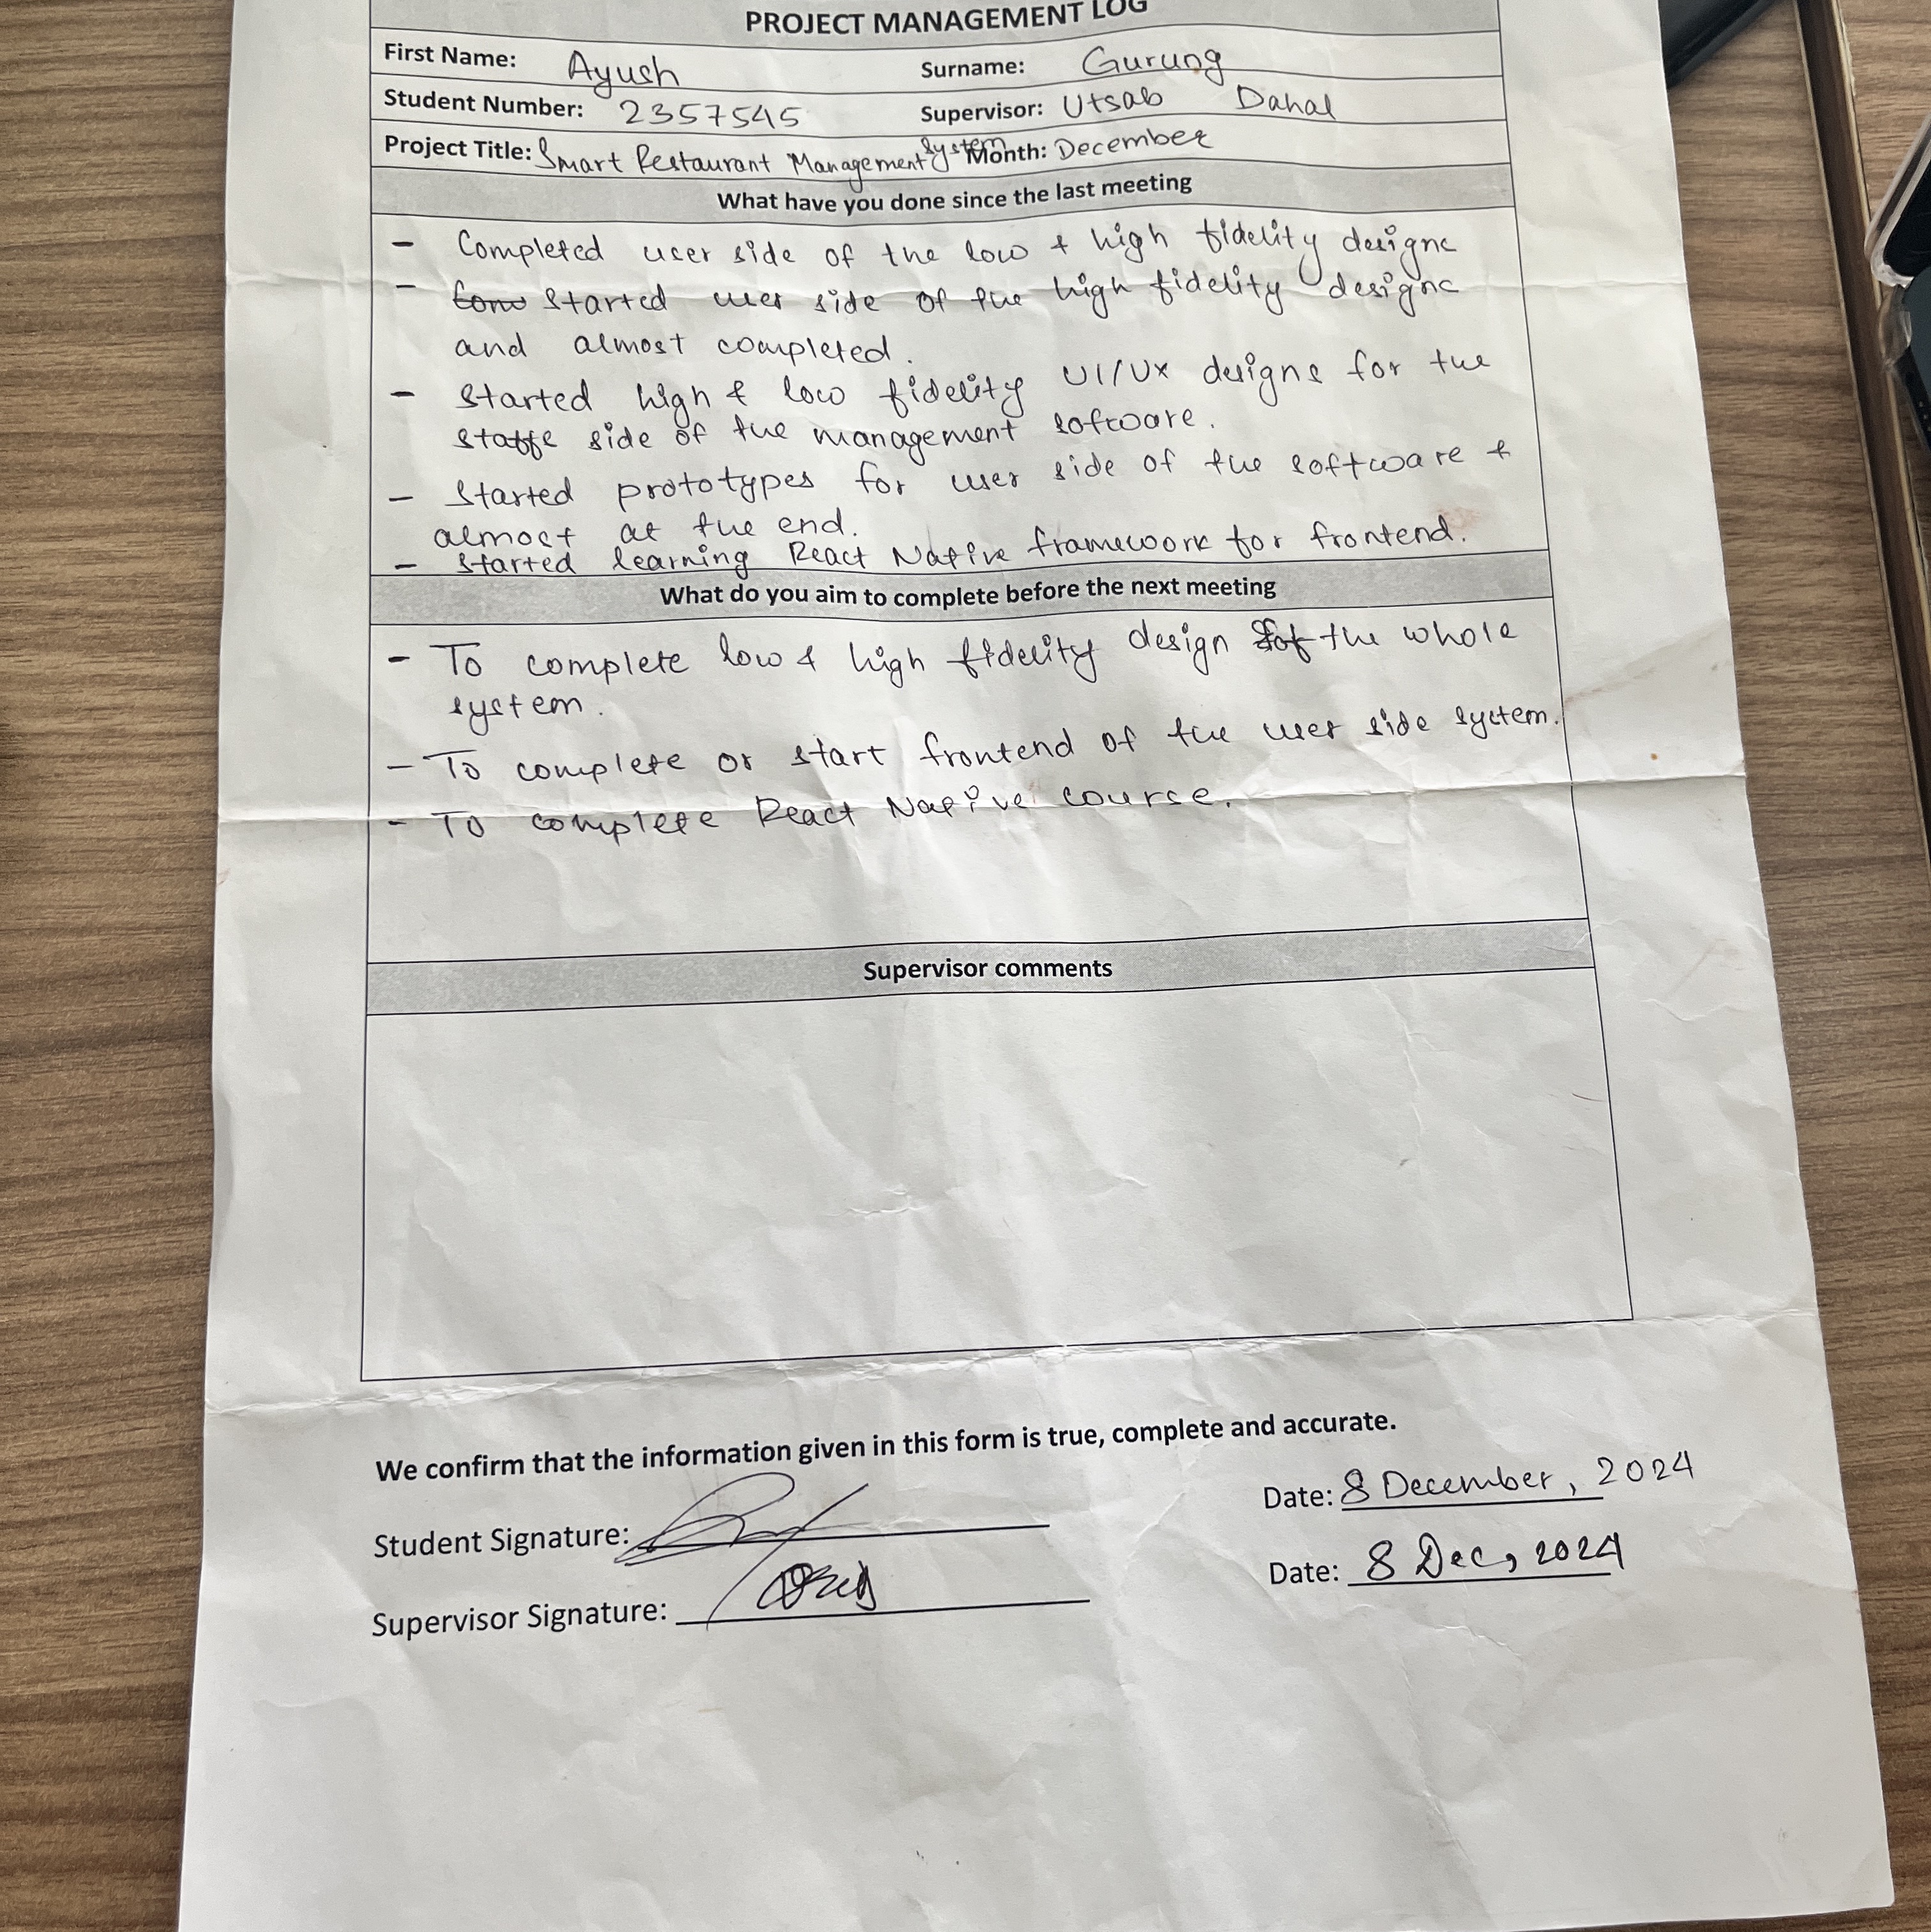 PROJECT MANAGEMENT LOG
First Name: Ayush Surname: Gurung
Student Number: 2357545 Supervisor: Utsab Dahal
Project Title: Smart Restaurant Management System Month: December
What have you done since the last meeting
- Completed user side of the low & high fidelity designs
- Started user side of the high fidelity designs
and almost completed.
- Started high & low fidelity UI/UX designs for the
staffs side of the management software.
- Started prototypes for user side of the software &
almost at the end.
- Started learning React Native framework for frontend.
What do you aim to complete before the next meeting
- To complete low & high fidelity design of the whole
system.
- To complete or start frontend of the user side system.
- To complete React Native course.
Supervisor comments
We confirm that the information given in this form is true, complete and accurate.
Student Signature: Date: 8 December, 2024
Supervisor Signature: Date: 8 Dec, 2024